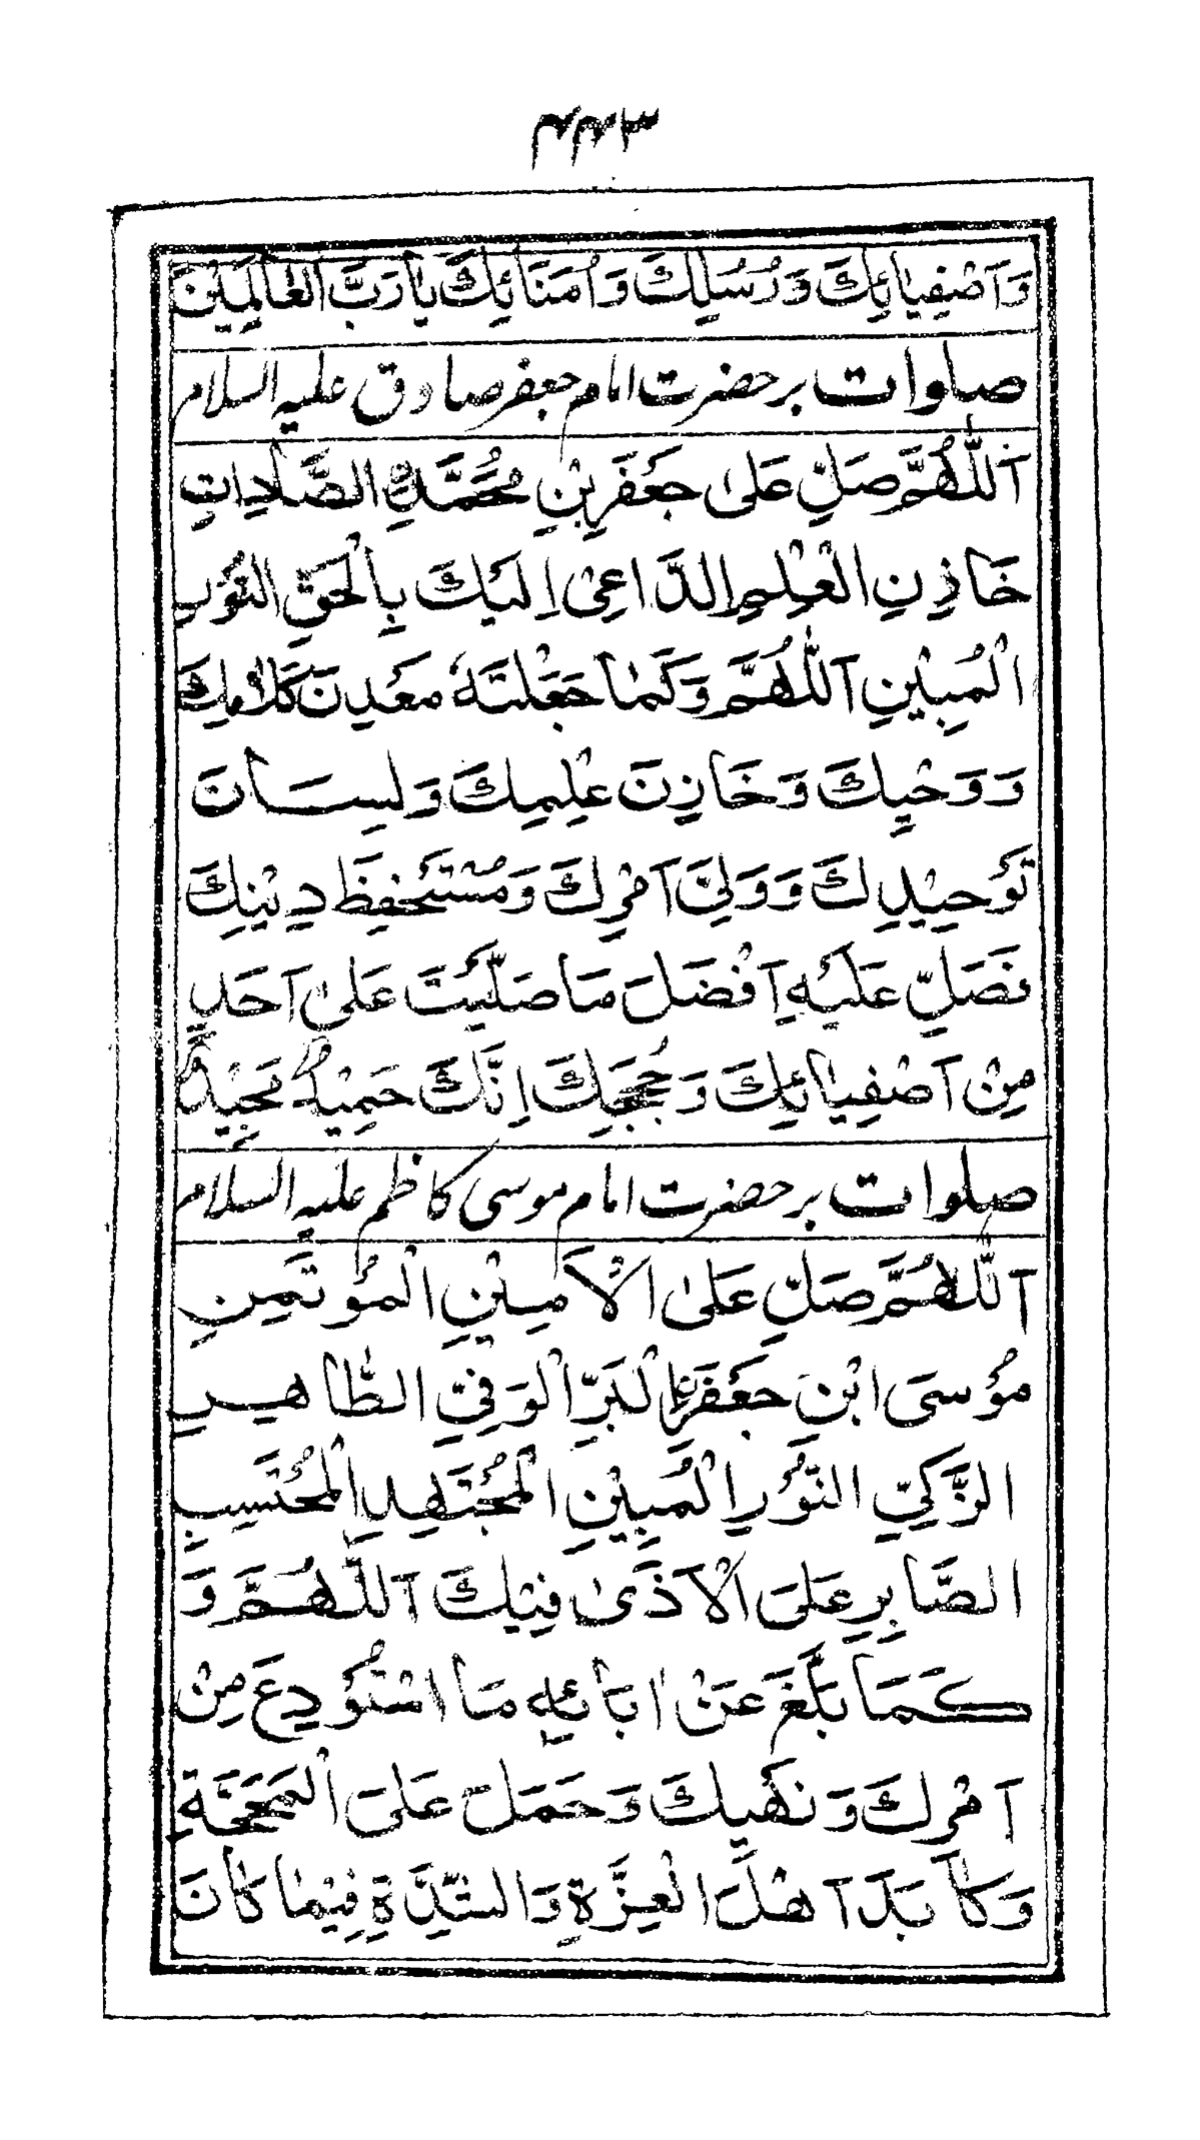 وَاَصْفِيَائِكَ وَرُسُلِكَ وَاُمَنَائِكَ يَارَبَّ الْعَالَمِيْنَ
صلوات بر حضرت امام جعفر صادق علیه السلام
اَللّٰهُمَّ صَلِّ عَلٰى جَعْفَرِ بْنِ مُحَمَّدٍ الصَّادِقِ
خَازِنِ الْعِلْمِ الدَّاعِىْ اِلَيْكَ بِالْحَقِّ النُّوْرِ
الْمُبِيْنِ اَللّٰهُمَّ وَكَمَا جَعَلْتَهٗ مَعْدِنَ كَلَامِكَ
وَوَحْيِكَ وَخَازِنَ عِلْمِكَ وَلِسَانَ
تَوْحِيْدِكَ وَوَلِىَّ اَمْرِكَ وَمُسْتَحْفِظَ دِيْنِكَ
فَصَلِّ عَلَيْهِ اَفْضَلَ مَا صَلَّيْتَ عَلٰى اَحَدٍ
مِنْ اَصْفِيَائِكَ وَحُجَجِكَ اِنَّكَ حَمِيْدٌ مَجِيْدٌ
صلوات بر حضرت امام موسی کاظم علیه السلام
اَللّٰهُمَّ صَلِّ عَلَى الْاَمِيْنِ الْمُؤْتَمَنِ
مُوْسَى ابْنِ جَعْفَرٍ الْبَرِّ الْوَفِىِّ الطَّاهِرِ
الزَّكِىِّ النُّوْرِ الْمُبِيْنِ الْمُجْتَهِدِ الْمُحْتَسِبِ
الصَّابِرِ عَلَى الْاَذٰى فِيْكَ اَللّٰهُمَّ وَ
كَمَا بَلَّغَ عَنْ اٰبَائِهِ مَا اسْتُوْدِعَ مِنْ
اَمْرِكَ وَنَهْيِكَ وَحَمَلَ عَلَى الْمَحَجَّةِ
وَكَابَدَ اَهْلَ الْعِزَّةِ وَالشِّدَّةِ فِيْمَا كَانَ